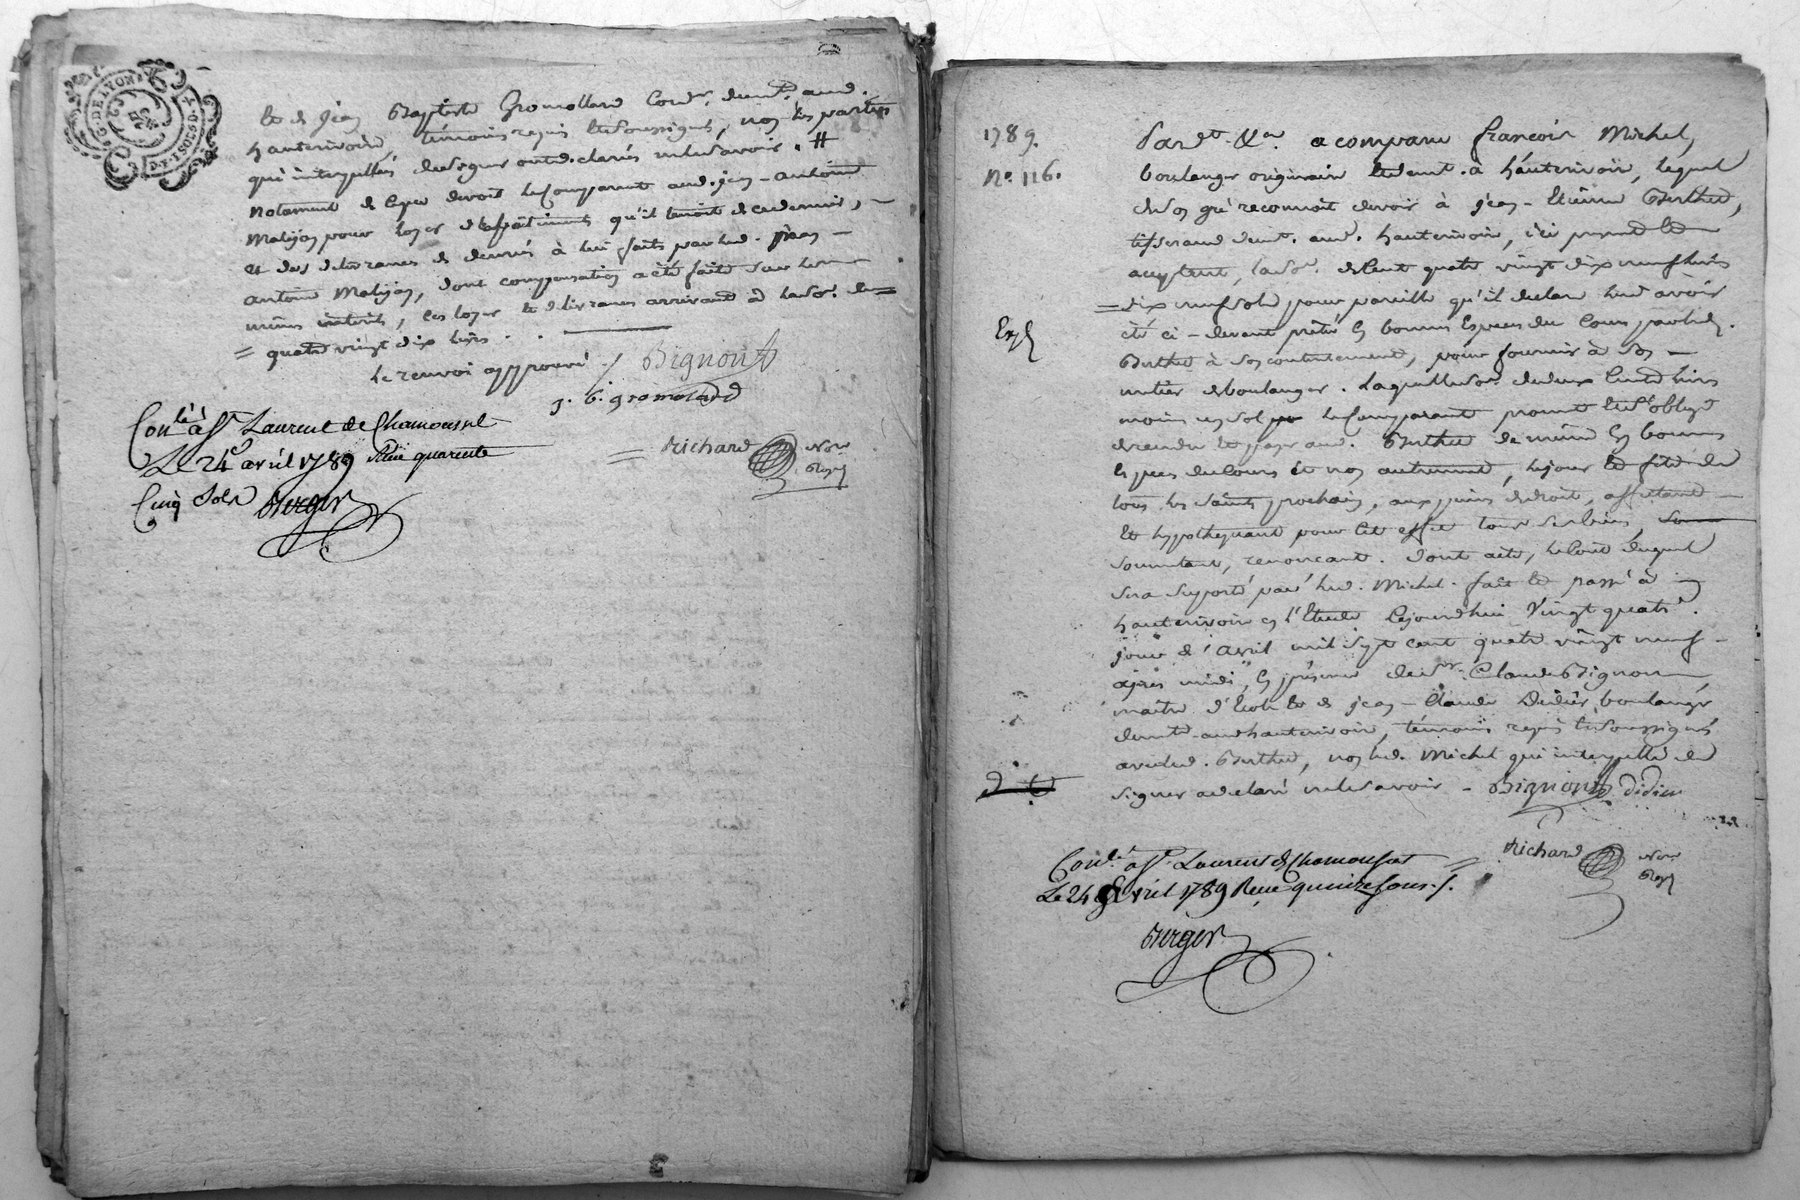 G. DE LYON
DE 1 SOL 8 D.
et de jean Baptiste Gromollard Cord.r demt. aud.
hauterivoire, témoins requis et soussignés, non les parties
qui interpellées de signer ont déclaré ne le savoir. #
notament de ce que devoit le Comparant aud. jean-antoine
Malijay pour loyer d'apartiments qu'il tenoit de ce dernier, -
et des délivrances de denrées à lui faits par led. jean -
antoine Malijay, dont compensation a été faite sur les
mêmes interêts, ces loyer et délivrances arrivant à la so.e de =
= quatre vingt dix livres.
le renvoi approuvé
Bignon
j. b. gromolard
Richard Nore
Royal
Conlé à St. Laurent de Chamousset
Le 24e avril 1789 Reçu quarente
Cinq Sols Berger
1789.
No. 116.
Pard.t &a. a comparu françois Michel
boulanger originaire et demt. à hauterivoire, lequel
de son gré reconnoit devoir à jean-Etienne Berthet,
tisserand demt. aud. hauterivoire, ici présent et
acceptant, la so.e de Cent quatre vingt dix neuf livres
= dix neuf sols pour pareille qu'il déclare lui avoir
été ci-devant prêtée en bonnes Espèces du Cours par led.
Berthet à son contentement, pour fournir à son -
métier de boulanger. Laquelle so.e de deux Cents livres
moins un sol le Comparant promet et s'oblige
de rendre et payer aud. Berthet de même en bonnes
Espèces du Cours et non autrement, le jour et fête de
tous les saints prochain, aux peines de droit, affectant -
et hypothequant pour cet effet tous ses biens,
soumettant, renonçant. Dont acte, le Coût duquel
sera suporté par led. Michel. fait et passé à
hauterivoire en l'Etude Cejourd'hui Vingt quatre
jour d'avril mil sept cent quatre vingt neuf -
après midi, en présence de Sr. Claude Bignon
maître d'Ecole et de jean-Claude Didier, boulanger
demt. aud. hauterivoire, témoins requis et soussignés
avec led. Berthet, non led. Michel qui interpellé de
signer a déclaré ne le savoir - Bignon Didier
Richard Nore
Royal
Conlé à St. Laurent de Chamousset
Le 24 avril 1789 Reçu quinze sous.
Berger